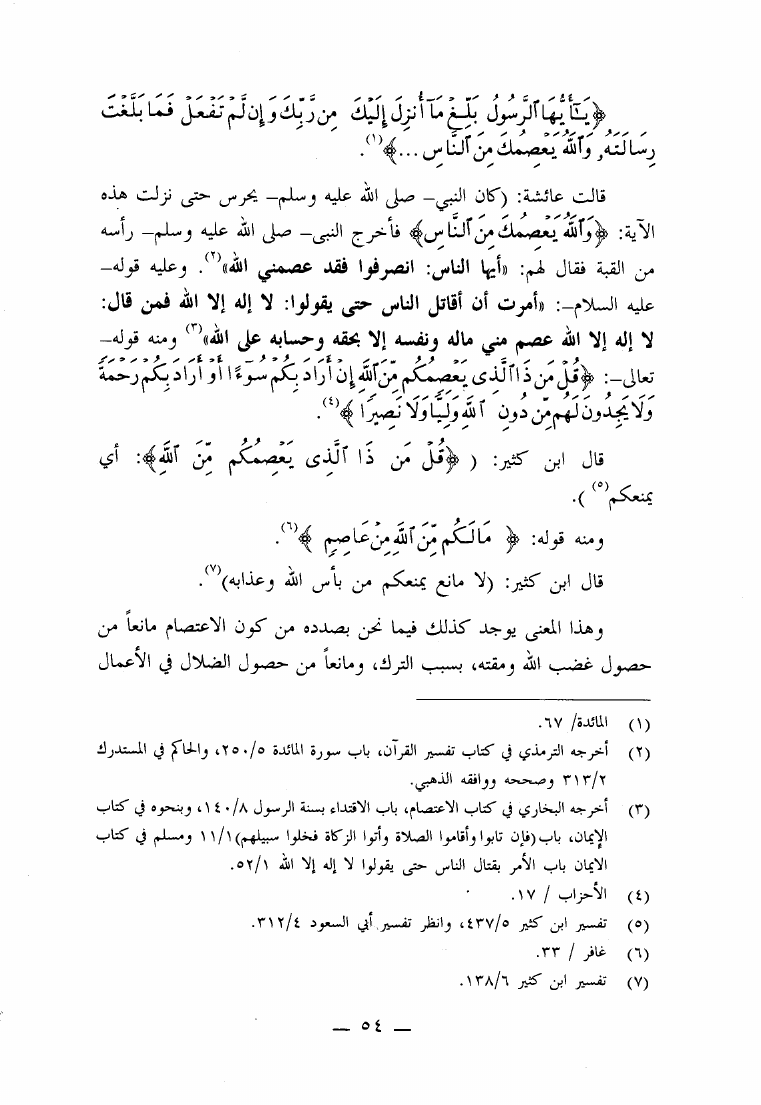 ﴿يَـٰٓأَيُّهَا ٱلرَّسُولُ بَلِّغْ مَآ أُنزِلَ إِلَيْكَ مِن رَّبِّكَ وَإِن لَّمْ تَفْعَلْ فَمَا بَلَّغْتَ
رِسَالَتَهُۥ وَٱللَّهُ يَعْصِمُكَ مِنَ ٱلنَّاسِ ...﴾(١).
قالت عائشة: (كان النبي– صلى الله عليه وسلم– يحرس حتى نزلت هذه
الآية: ﴿وَٱللَّهُ يَعْصِمُكَ مِنَ ٱلنَّاسِ﴾ فأخرج النبى– صلى الله عليه وسلم– رأسه
من القبة فقال لهم: «أيها الناس: انصرفوا فقد عصمني الله»(٢). وعليه قوله–
عليه السلام–: «أمرت أن أقاتل الناس حتى يقولوا: لا إله إلا الله فمن قال:
لا إله إلا الله عصم مني ماله ونفسه إلا بحقه وحسابه على الله»(٣) ومنه قوله–
تعالى–: ﴿قُلْ مَن ذَا ٱلَّذِى يَعْصِمُكُم مِّنَ ٱللَّهِ إِنْ أَرَادَ بِكُمْ سُوٓءًا أَوْ أَرَادَ بِكُمْ رَحْمَةً
وَلَا يَجِدُونَ لَهُم مِّن دُونِ ٱللَّهِ وَلِيًّا وَلَا نَصِيرًا ﴾(٤).
قال ابن كثير: ( ﴿قُلْ مَن ذَا ٱلَّذِى يَعْصِمُكُم مِّنَ ٱللَّهِ﴾: أي
يمنعكم(٥) ).
ومنه قوله: ﴿ مَالَكُم مِّنَ ٱللَّهِ مِنْ عَاصِمٍ ﴾(٦).
قال ابن كثير: (لا مانع يمنعكم من بأس الله وعذابه)(٧).
وهذا المعنى يوجد كذلك فيما نحن بصدده من كون الاعتصام مانعاً من
حصول غضب الله ومقته، بسبب الترك، ومانعاً من حصول الضلال في الأعمال
(١) المائدة/ ٦٧.
(٢) أخرجه الترمذي في كتاب تفسير القرآن، باب سورة المائدة ٢٥٠/٥، والحاكم في المستدرك
٣١٣/٢ وصححه ووافقه الذهبي.
(٣) أخرجه البخاري في كتاب الاعتصام، باب الاقتداء بسنة الرسول ١٤٠/٨، وبنحوه في كتاب
الإيمان، باب (فإن تابوا وأقاموا الصلاة وأتوا الزكاة فخلوا سبيلهم) ١١/١ ومسلم في كتاب
الايمان باب الأمر بقتال الناس حتى يقولوا لا إله إلا الله ٥٢/١.
(٤) الأحزاب / ١٧.
(٥) تفسير ابن كثير ٤٣٧/٥، وانظر تفسير أبي السعود ٣١٢/٤.
(٦) غافر / ٣٣.
(٧) تفسير ابن كثير ١٣٨/٦.
— ٥٤ —